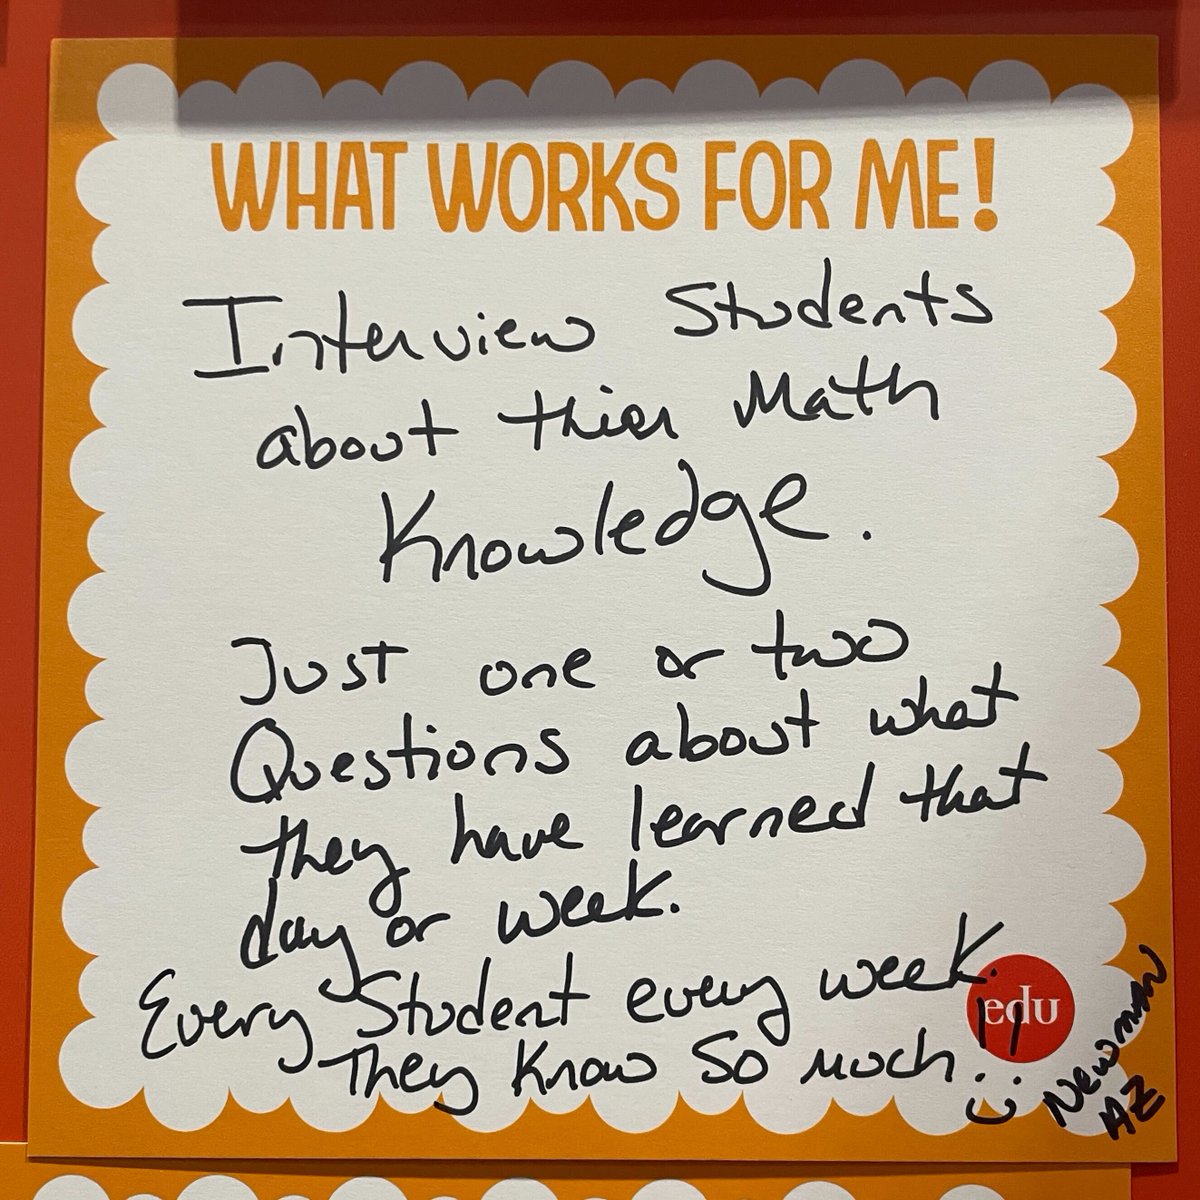 WHAT WORKS FOR ME!
Interview Students
about thier Math
Knowledge.
Just one or two
Questions about what
they have learned that
day or week.
Every Student every week.
They Know So Much!!
edu
Newman
AZ